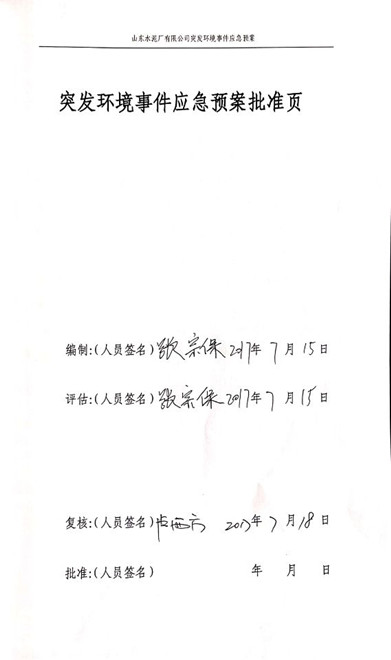 山东水泥厂有限公司突发环境事件应急预案
突发环境事件应急预案批准页
编制:(人员签名) 张宗保 2017年 7 月 15 日
评估:(人员签名) 张宗保 2017年 7 月 15 日
复核:(人员签名) 2017年 7 月 18 日
批准:(人员签名) 年 月 日